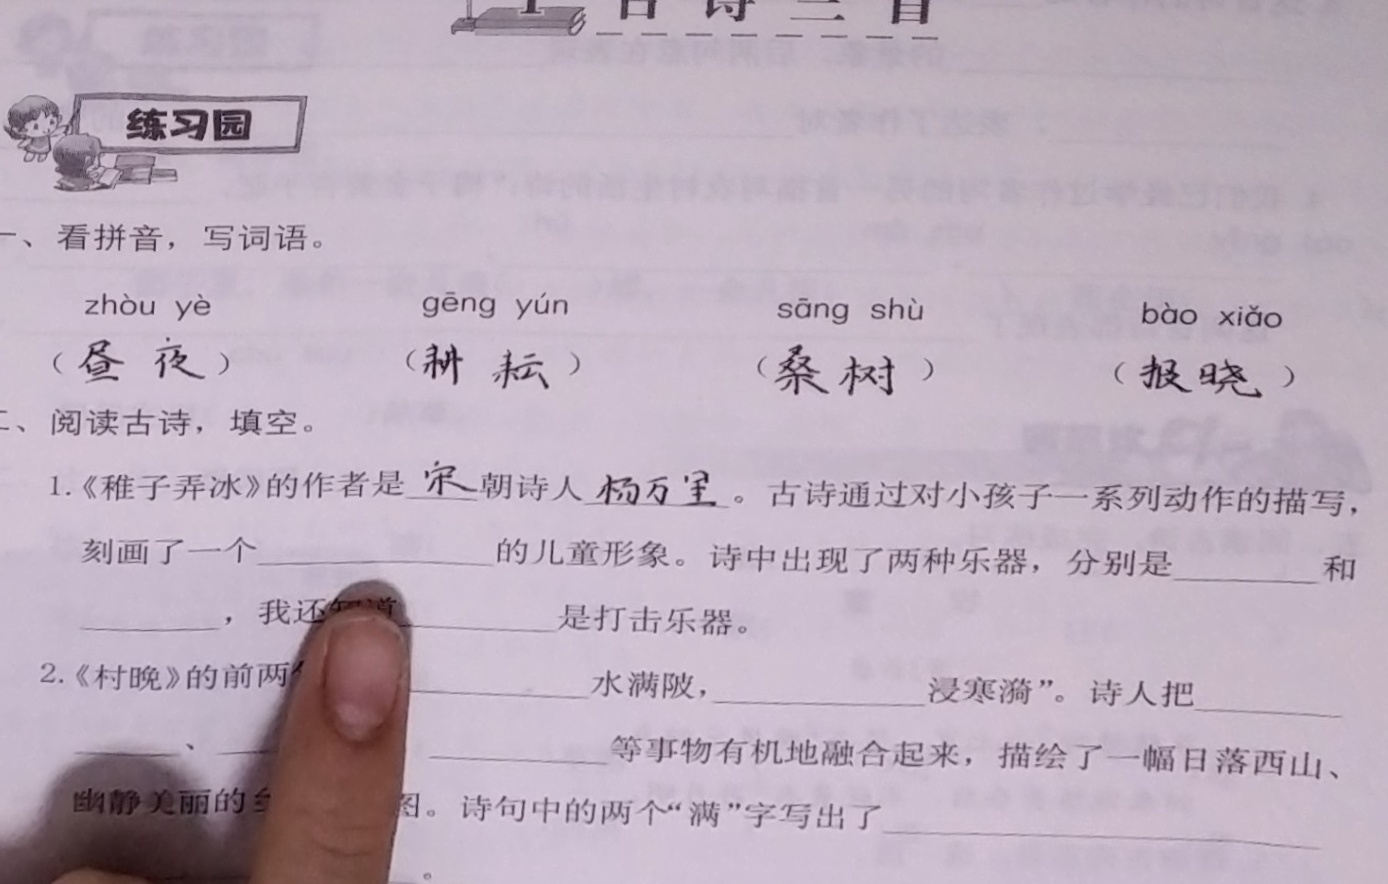 古诗三首
练习园
一、看拼音，写词语。
zhòu yè gēng yún sāng shù bào xiǎo
（昼夜） （耕耘） （桑树） （报晓）
二、阅读古诗，填空。
1.《稚子弄冰》的作者是宋朝诗人杨万里。古诗通过对小孩子一系列动作的描写，
刻画了一个________的儿童形象。诗中出现了两种乐器，分别是________和
________，我还知道________是打击乐器。
2.《村晚》的前两 ________水满陂，________浸寒漪”。诗人把________
________、________ ________等事物有机地融合起来，描绘了一幅日落西山、
幽静美丽的 图。诗句中的两个“满”字写出了________
________。